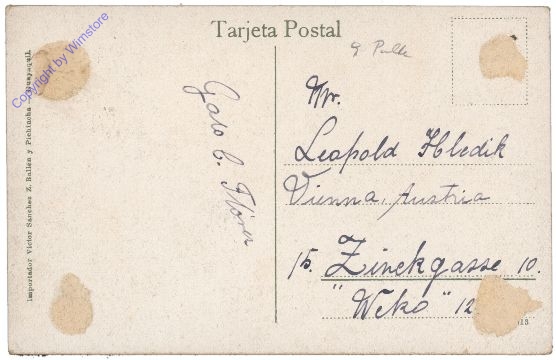 Tarjeta Postal
Copyright by Wimstore
Importador Victor Sanchez Z. Ballén y Pichincha - Guayaquil.
Galo C. Flores
Mr.
Leopold Hledik
Vienna, Austria
15. Zinckgasse 10.
"Weko" 12